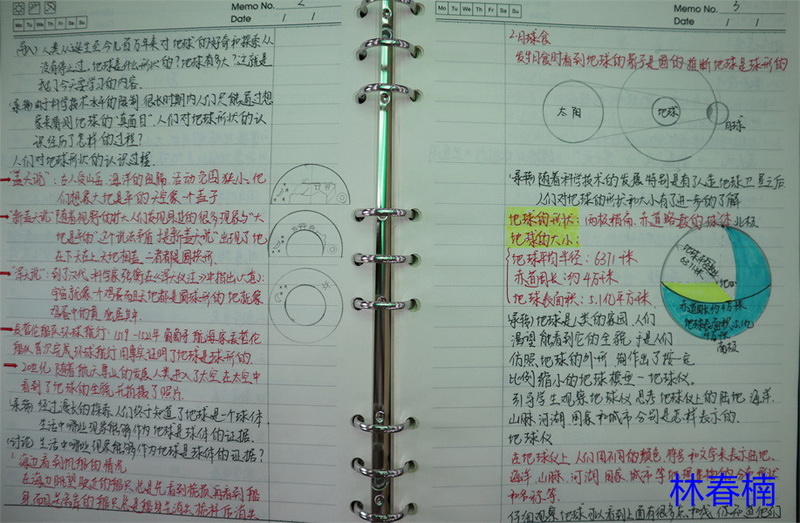 Memo No. 2
Mo Tu We Th Fr Sa Su
Date / /
(导入) 人类从诞生至今几百万年来对地球的好奇和探索从
没有停止过,地球是什么形状的?地球有多大?这就是
我们今天要学习的内容.
(承转)由于科学技术水平的限制 很长时期内人们只能通过想
象来看测地球的"真面目".人们对地球形状的认
识经历了怎样的过程?
人们对地球形状的认识过程.
"盖天说": 古人受山岳、海洋的阻隔 活动范围狭小、他
们想象大地是平的 天空象一个盖子
"新盖天说" 随着视野的扩大人们发现身边的很多现象与"大
地是平的"这个说法矛盾 提新盖天说"出现了 地
在下 天在上 天地相盖 二者都是圆拱形.
"浑天说": 到了汉代 科学家张衡在《浑天仪注》中指出
宇宙就象一个鸡蛋 而且天地都是圆球形的 地就象
鸡蛋中的黄
麦哲伦船队环球航行: 1519-1522年 葡萄牙航海家麦哲伦
船队首次完成环球航行 用事实证明了地球是球形的.
20世纪 随着航天事业的发展 人类进入了太空 在太空中
看到了地球的全貌 并拍摄了照片.
(承转) 经过漫长的探索 人们终于知道了地球是一个球体
生活中哪些现象能够作为地球是球体的证据.
(讨论) 生活中哪些现象能够作为地球是球体的证据?
1. 海边看到帆船的情况
在海边眺望驶近的船只 总是先看到桅杆 再看到船
身 而
Memo No. 3
Mo Tu We Th Fr Sa Su
Date / /
2.月球食
发生月食时看到地球的影子是圆的 推断地球是球形的
太阳
地球
月球
(承转) 随着科学技术的发展 特别是有了人造地球卫星之后
人们对地球的形状和大小有了进一步的了解
地球的形状: 两极稍扁、赤道略鼓的球体
北极
地球的大小:
地球平均半径: 6371千米
赤道周长: 约4万千米
地球表面积: 5.1亿平方千米
地球平均半径
6371千米
地心
赤道周长约4万千米
地球表面积:5.1亿
平方千米
南极
(承转) 地球是人类的家园,人们
渴望能看到它的全貌 于是人们
仿照地球的外形 制作出了按一定
比例缩小的地球模型—地球仪.
引导学生观察地球仪 思考地球仪上的陆地、海洋、
山脉、河湖、国家和城市分别是怎样表示的.
地球仪
在地球仪上人们用不同的颜色、符号和文字来表示陆地、
海洋、山脉、河湖、国家、城市等
和名称等.
仔细观察
林春楠